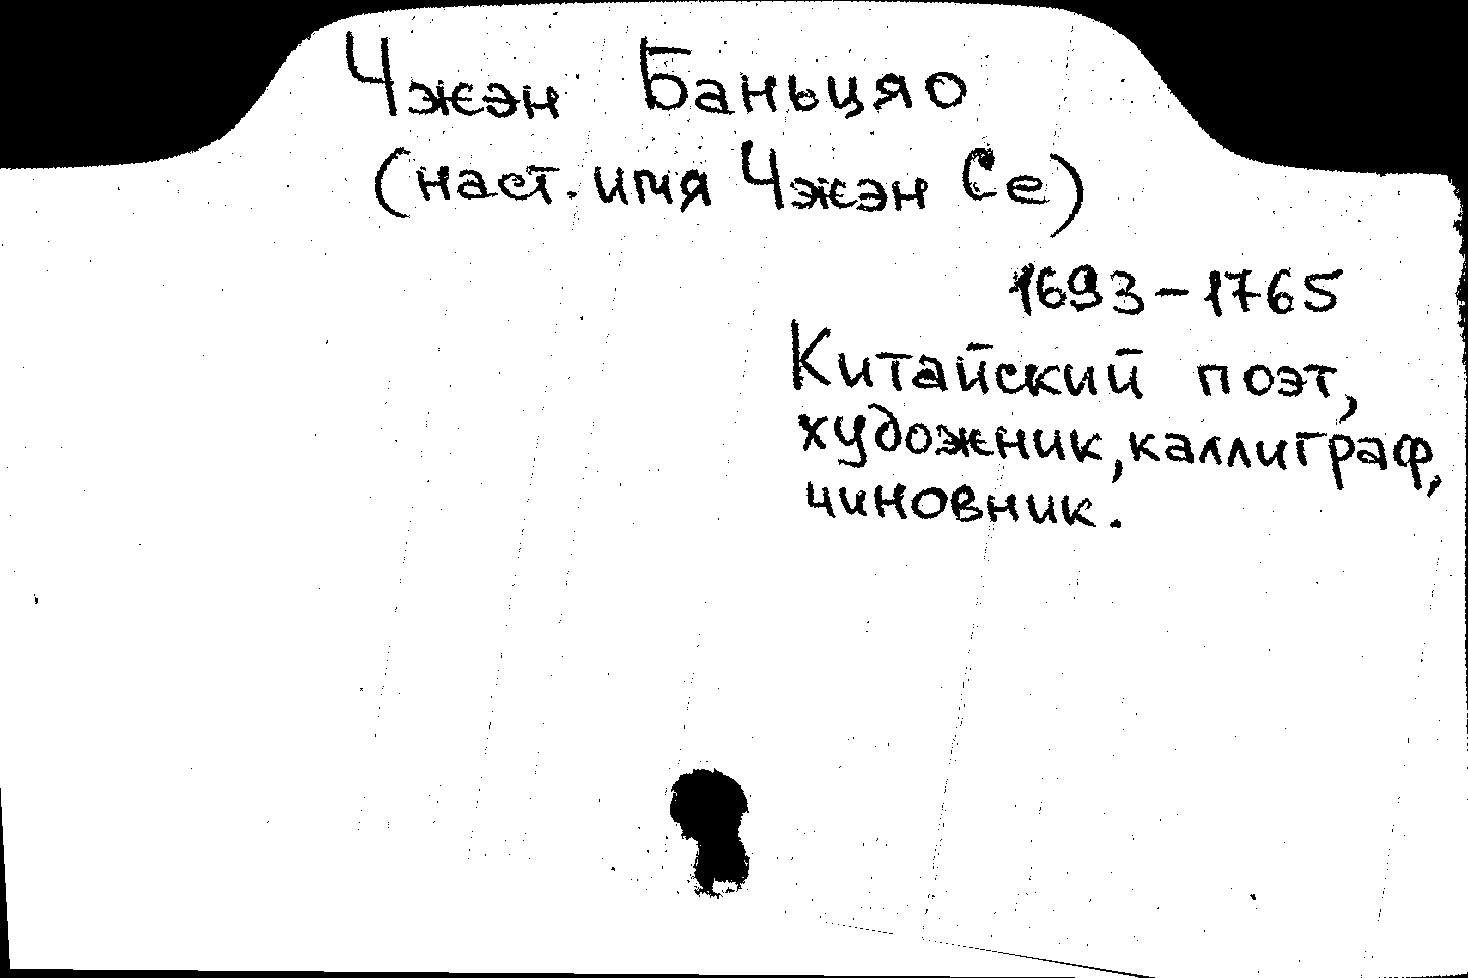 Чжэн Баньцяо
(наст. имя Чжэн Се)
1693-1765
Китайский поэт,
художник, каллиграф,
чиновник.